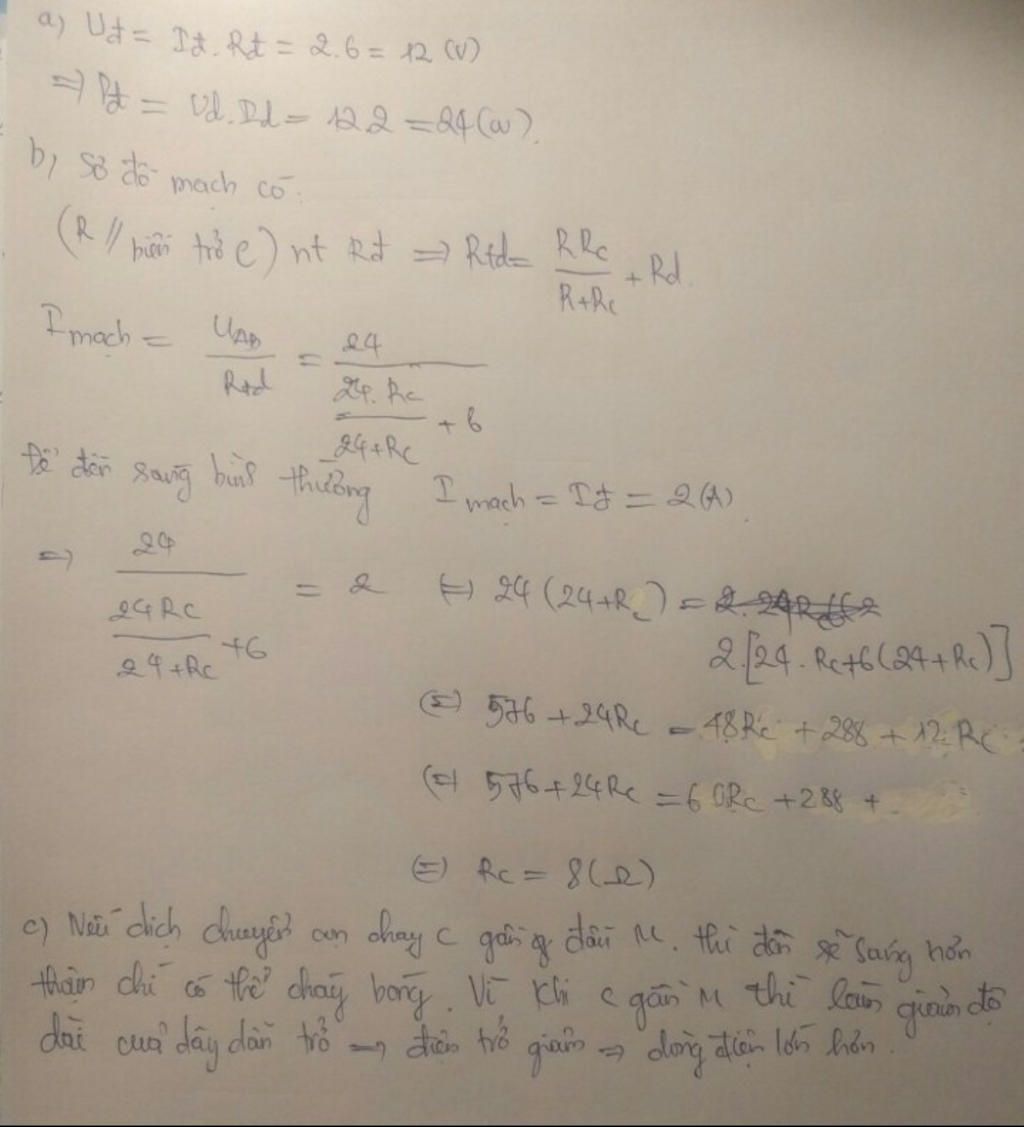 a) Uđ = Iđ. Rđ = 2.6 = 12 (V)
=> Pđ = Ud.Id = 12.2 = 24 (W).
b) Sơ đồ mạch có.
(R // biến trở C) nt Rđ => Rtđ = RRc/(R+Rc) + Rd.
I mạch = UAB/Rtđ = 24/(24.Rc/(24+Rc) + 6)
Để đèn sáng bình thường I mạch = Iđ = 2(A).
=> 24/(24RC/(24+Rc) + 6) = 2 (=) 24(24+Rc) =
2.[24.Rc+6(24+Rc)]
(=) 576 + 24Rc = 48Rc + 288 + 12.Rc
(=) 576 + 24Rc = 60Rc + 288 +
(=) Rc = 8(Ω)
c) Nếu dịch chuyển con chạy C gần đầu M. thì đèn sẽ sáng hơn
thậm chí có thể cháy bóng. Vì khi C gần M thì làm giảm độ
dài của dây dẫn trở → điện trở giảm => dòng điện lớn hơn.